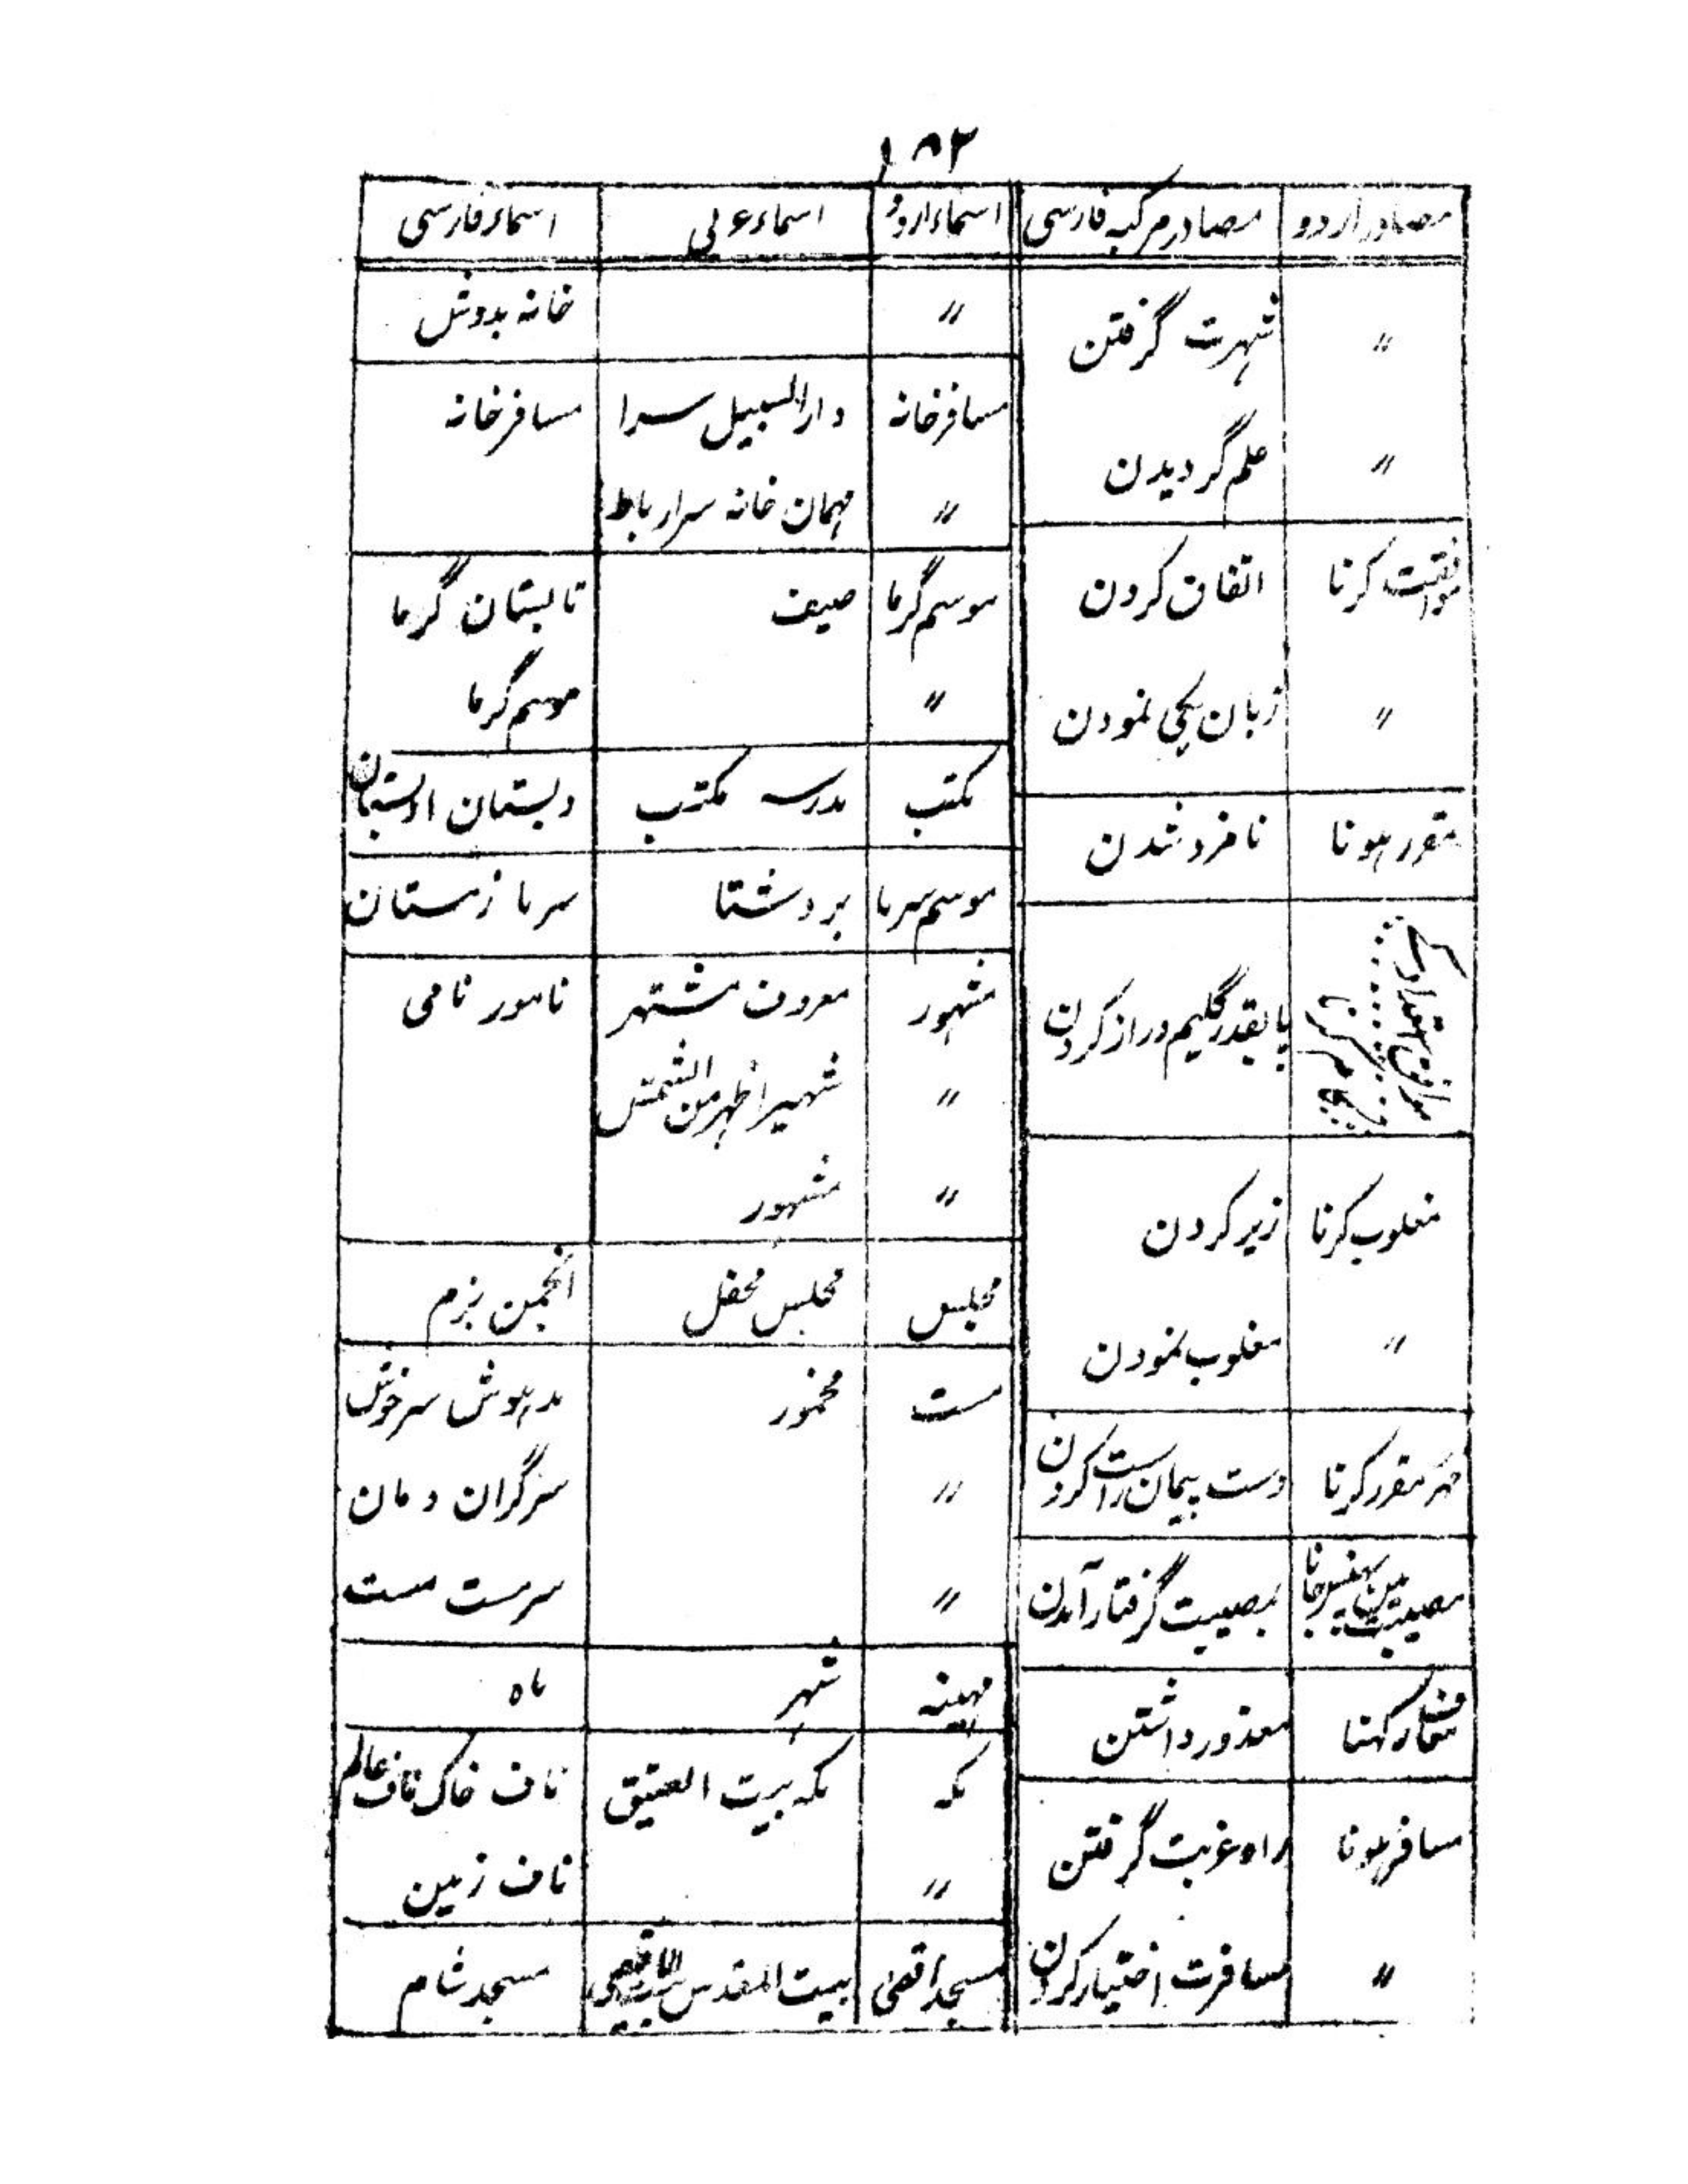 ۱۸۲
مصادر اردو | مصادر مرکبہ فارسی | اسماء اردو | اسماء عربی | اسماء فارسی
〃 | شہرت گرفتن
〃 | علم گردیدن
موافقت کرنا | اتفاق کردن
〃 | زبان یکی نمودن
مقرر ہونا | نامزد شدن
موافق استعداد کے کام کرنا | پا بقدر گلیم دراز کردن
مغلوب کرنا | زیر کردن
〃 | مغلوب نمودن
مہر مقرر کرنا | دست پیمان راست کردن
مصیبت میں پھنس جانا | بمصیبت گرفتار آمدن
معذور داشتن
مسافر ہونا | راہ غربت گرفتن
〃 | مسافرت اختیار کردن
〃 | خانہ بدوش
مسافر خانہ | دار السبیل سرا | مسافر خانہ
〃 | مہمان خانہ سرا رباط
موسم گرما | صیف | تابستان گرما
〃 | موسم گرما
مکتب | مدرسہ مکتب | دبستان ادبستان
موسم سرما | برد شتا | سرما زمستان
مشہور | معروف مشتہر | نامور نامی
〃 | شہیر اظہر من الشمس
〃 | مشہور
مجلس | مجلس محفل | انجمن بزم
مست | مخمور | مدہوش سرخوش
〃 | سرگران دمان
〃 | سرمست مست
مہینہ | شہر | ماہ
مکہ | مکہ بیت العتیق | ناف خاک ناف عالم
〃 | ناف زمین
مسجد اقصی | بیت المقدس | مسجد شام